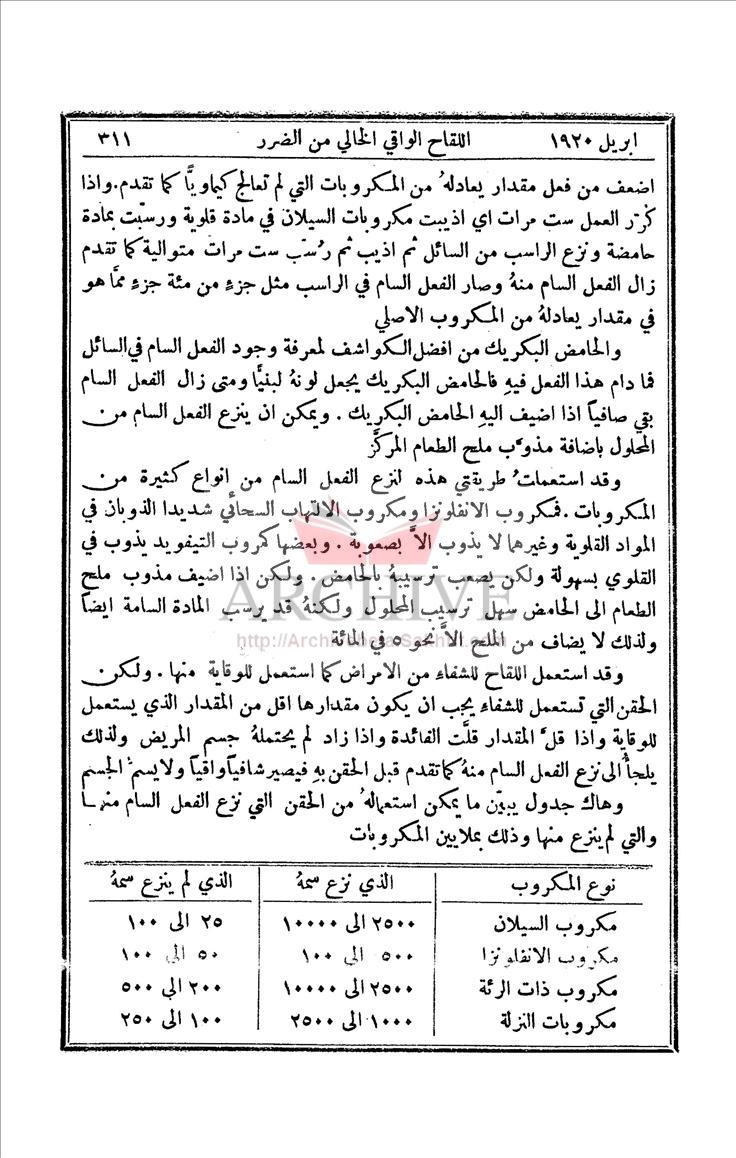 ابريل ١٩٢٠ اللقاح الواقي الخالي من الضرر ٣١١
اضعف من فعل مقدار يعادلهُ من المكروبات التي لم تعالج كيماويًّا كما تقدم. واذا
كُرّر العمل ست مرات اي اذيبت مكروبات السيلان في مادة قلوية ورسّبت بمادة
حامضة ونزع الراسب من السائل ثم اذيب ثم رُسّب ست مرات متوالية كما تقدم
زال الفعل السام منهُ وصار الفعل السام في الراسب مثل جزءٍ من مئة جزءٍ ممَّا هو
في مقدار يعادلهُ من المكروب الاصلي
والحامض البكريك من افضل الكواشف لمعرفة وجود الفعل السام في السائل
فما دام هذا الفعل فيهِ فالحامض البكريك يجعل لونهُ لبنيًّا ومتى زال الفعل السام
بقي صافياً اذا اضيف اليهِ الحامض البكريك . ويمكن ان ينزع الفعل السام من
المحلول باضافة مذوَّب ملح الطعام المركَّز
وقد استعملتُ طريقتي هذه لنزع الفعل السام من انواع كثيرة من
المكروبات . فمكروب الانفلونزا ومكروب الالتهاب السحائي شديدا الذوبان في
المواد القلوية وغيرهما لا يذوب الاَّ بصعوبة . وبعضها كمكروب التيفويد يذوب في
القلوي بسهولة ولكن يصعب ترسيبهُ بالحامض . ولكن اذا اضيف مذوب ملح
الطعام الى الحامض سهل ترسيب المحلول ولكنهُ قد يرسب المادة السامة ايضاً
ولذلك لا يضاف من الملح الاَّ نحو ٥ في المائة
ARCHIVE
http://Archivebeta.Sakhrit.com
وقد استعمل اللقاح للشفاءِ من الامراض كما استعمل للوقاية منها . ولكن
الحقن التي تستعمل للشفاءِ يجب ان يكون مقدارها اقل من المقدار الذي يستعمل
للوقاية واذا قلَّ المقدار قلَّت الفائدة واذا زاد لم يحتملهُ جسم المريض ولذلك
يلجأ الى نزع الفعل السام منهُ كما تقدم قبل الحقن بهِ فيصير شافياً وافياً ولا يسم الجسم
وهاك جدول يبيّن ما يمكن استعمالهُ من الحقن التي نزع الفعل السام منها
والتي لم ينزع منها وذلك بملايين المكروبات
نوع المكروب الذي نزع سمهُ الذي لم ينزع سمهُ
مكروب السيلان ٢٥٠٠ الى ١٠٠٠٠ ٢٥ الى ١٠٠
مكروب الانفلونزا ٥٠٠ الى ١٠٠ ٥٠ الى ١٠٠
مكروب ذات الرئة ٢٥٠٠ الى ١٠٠٠٠ ٢٠٠ الى ٥٠٠
مكروبات النزلة ١٠٠٠ الى ٢٥٠٠ ١٠٠ الى ٢٥٠